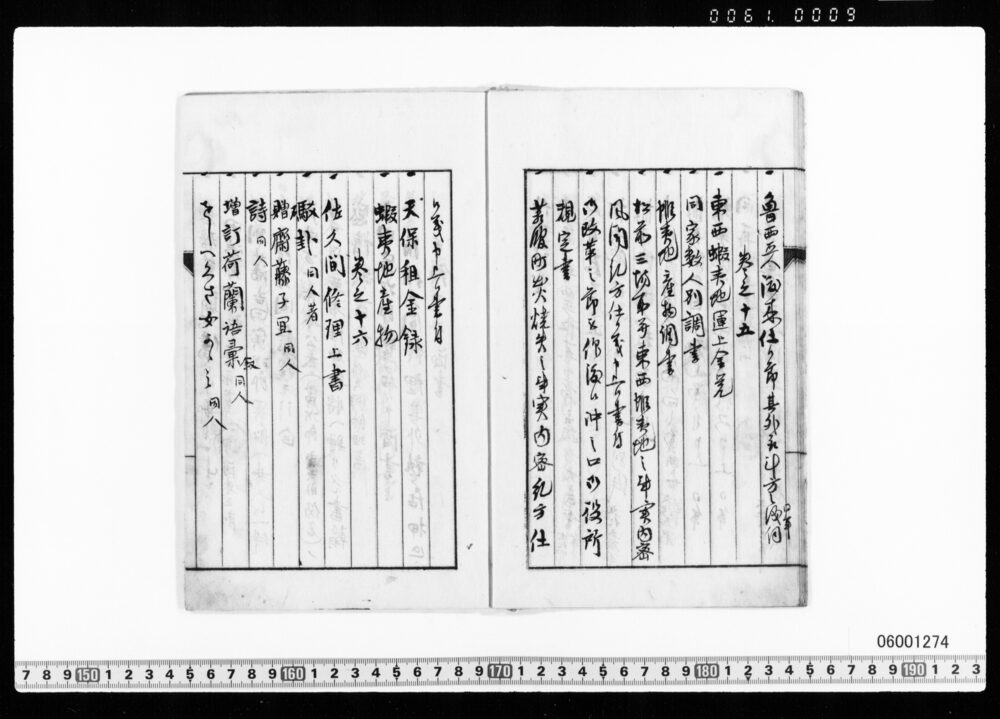 0061.0009
魯西亞人渡来仕候節其外取計方之儀伺
卷之十五
東西蝦夷地運上金凡
同家数人別調書
蝦夷地産物調書
松前三場所并東西蝦夷地之事実内密
風聞糺方仕候義申上候書付
御改革之節被仰渡候沖之口御役所
規定書
事実内密糺方仕
候義申上候書付
天保租金録
蝦夷地産物
卷之十六
佐久間修理上書
砲卦 同人著
贈齋藤子 同人
詩 同人
増訂荷蘭語彙 叙 同人
同人
06001274
7 8 9 150 1 2 3 4 5 6 7 8 9 160 1 2 3 4 5 6 7 8 9 170 1 2 3 4 5 6 7 8 9 180 1 2 3 4 5 6 7 8 9 190 1 2 3